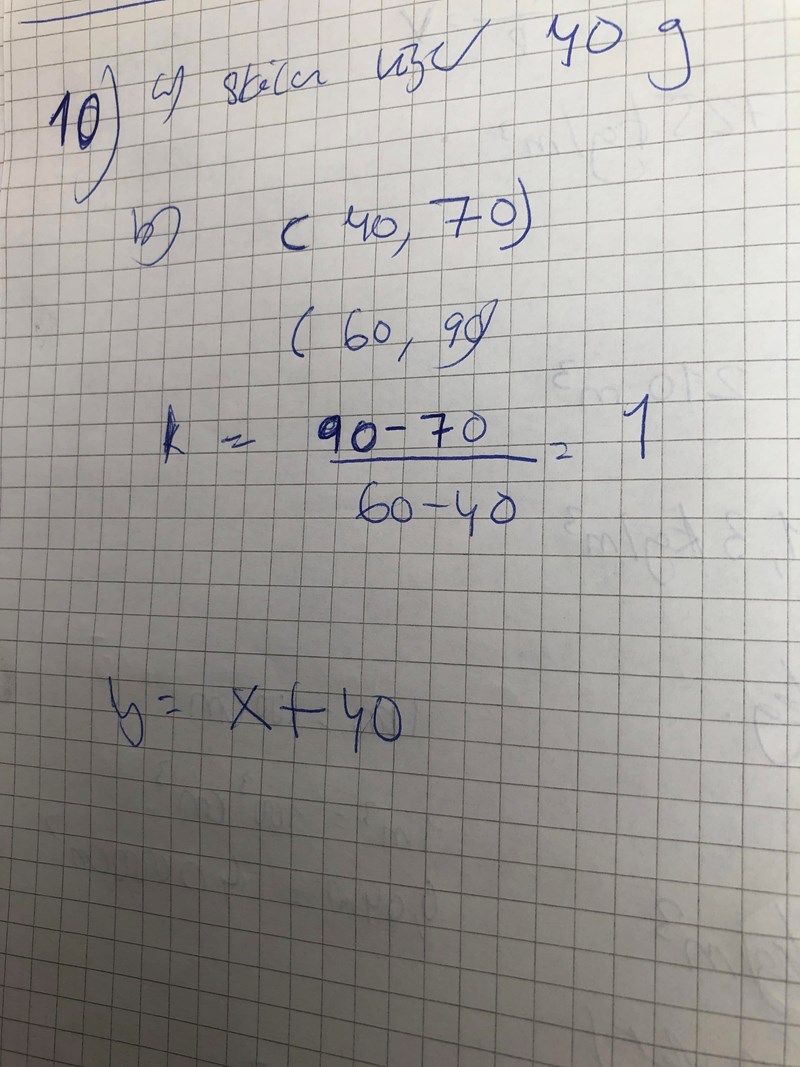 10) a) skålen väger 40 g
b) (40, 70)
(60, 90)
k = 90-70 / 60-40 = 1
y = x+40